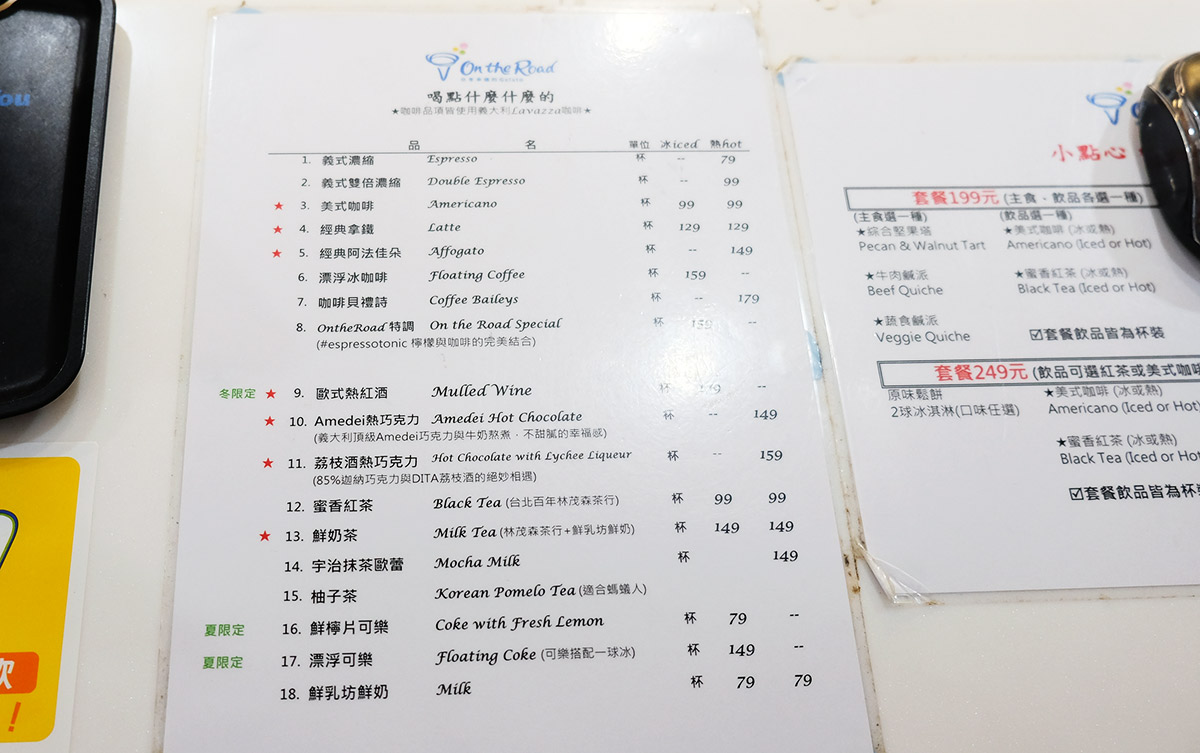 ou
On the Road
喝點什麼什麼的
★咖啡品項皆使用義大利Lavazza咖啡★
品 名 單位 冰iced 熱hot
1. 義式濃縮 Espresso 杯 -- 79
2. 義式雙倍濃縮 Double Espresso 杯 -- 99
★ 3. 美式咖啡 Americano 杯 99 99
★ 4. 經典拿鐵 Latte 杯 129 129
★ 5. 經典阿法佳朵 Affogato 杯 -- 149
6. 漂浮冰咖啡 Floating Coffee 杯 159 --
7. 咖啡貝禮詩 Coffee Baileys 杯 -- 179
8. OntheRoad 特調 On the Road Special 杯 159 --
(#espressotonic 檸檬與咖啡的完美結合)
冬限定 ★ 9. 歐式熱紅酒 Mulled Wine 杯 --
★ 10. Amedei熱巧克力 Amedei Hot Chocolate 杯 -- 149
(義大利頂級Amedei巧克力與牛奶熬煮，不甜膩的幸福感)
★ 11. 荔枝酒熱巧克力 Hot Chocolate with Lychee Liqueur 杯 -- 159
(85%迦納巧克力與DITA荔枝酒的絕妙相遇)
12. 蜜香紅茶 Black Tea (台北百年林茂森茶行) 杯 99 99
★ 13. 鮮奶茶 Milk Tea (林茂森茶行+鮮乳坊鮮奶) 杯 149 149
14. 宇治抹茶歐蕾 Mocha Milk 杯 149
15. 柚子茶 Korean Pomelo Tea (適合螞蟻人)
夏限定 16. 鮮檸片可樂 Coke with Fresh Lemon 杯 79 --
夏限定 17. 漂浮可樂 Floating Coke (可樂搭配一球冰) 杯 149 --
18. 鮮乳坊鮮奶 Milk 杯 79 79
小點心
套餐199元 (主食、飲品各選一種)
(主食選一種) (飲品選一種)
★綜合堅果塔 ★美式咖啡 (冰或熱)
Pecan & Walnut Tart Americano (Iced or Hot)
★牛肉鹹派 ★蜜香紅茶 (冰或熱)
Beef Quiche Black Tea (Iced or Hot)
★蔬食鹹派
Veggie Quiche ☑套餐飲品皆為杯裝
套餐249元 (飲品可選紅茶或美式咖啡
原味鬆餅 ★美式咖啡 (冰或熱)
2球冰淇淋(口味任選) Americano (Iced or Hot)
★蜜香紅茶 (冰或熱)
Black Tea (Iced or Hot)
☑套餐飲品皆為杯裝
！